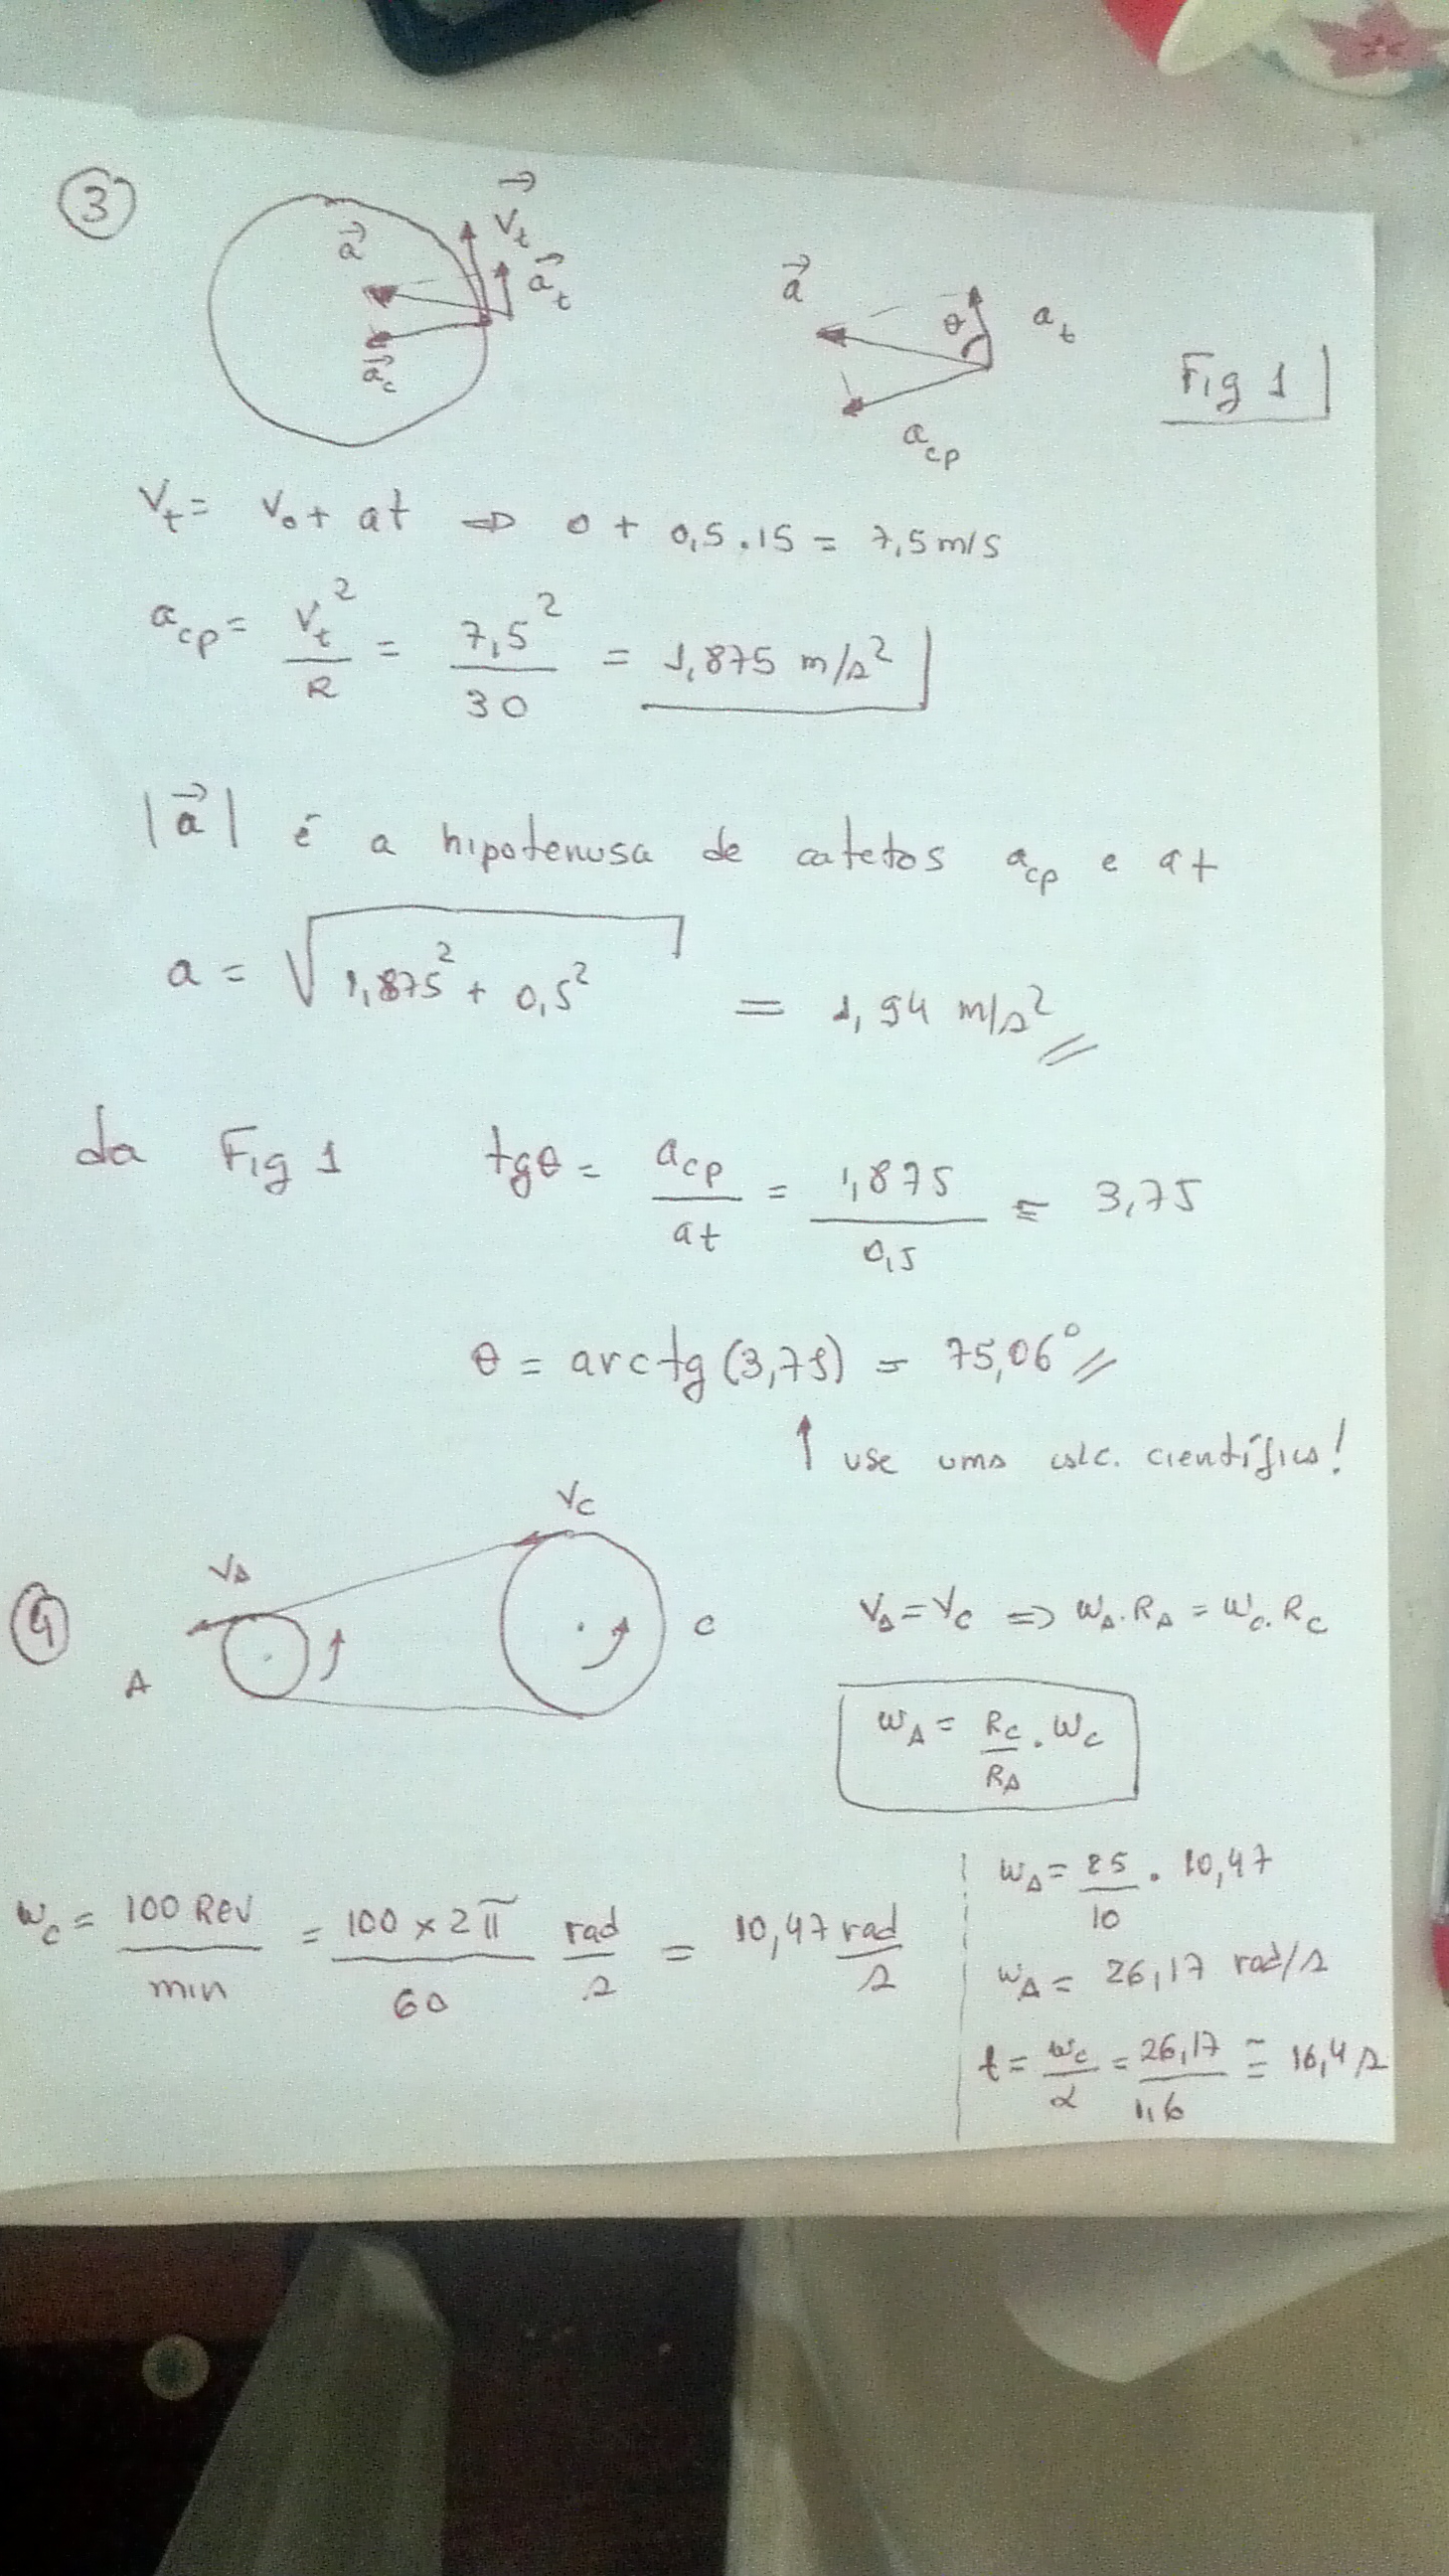 3
V⃗t
a⃗
a⃗t
a⃗c
a⃗
θ
at
acp
Fig 1
Vt = V0 + at ⇒ 0 + 0,5 . 15 = 7,5 m/s
acp = Vt²/R = 7,5²/30 = 1,875 m/s²
|a⃗| é a hipotenusa de catetos acp e at
a = √(1,875² + 0,5²) = 1,94 m/s²
da Fig 1 tgθ = acp/at = 1,875/0,5 = 3,75
θ = arctg(3,75) = 75,06°
↑ use uma calc. científica!
4
VA
VC
A
C
VA = VC ⇒ ωA . RA = ωC . RC
ωA = RC/RA . ωC
ωC = 100 Rev/min = 100 x 2π/60 rad/s = 10,47 rad/s
ωA = 25/10 . 10,47
ωA = 26,17 rad/s
t = ωC/α = 26,17/1,6 ≅ 16,4 s